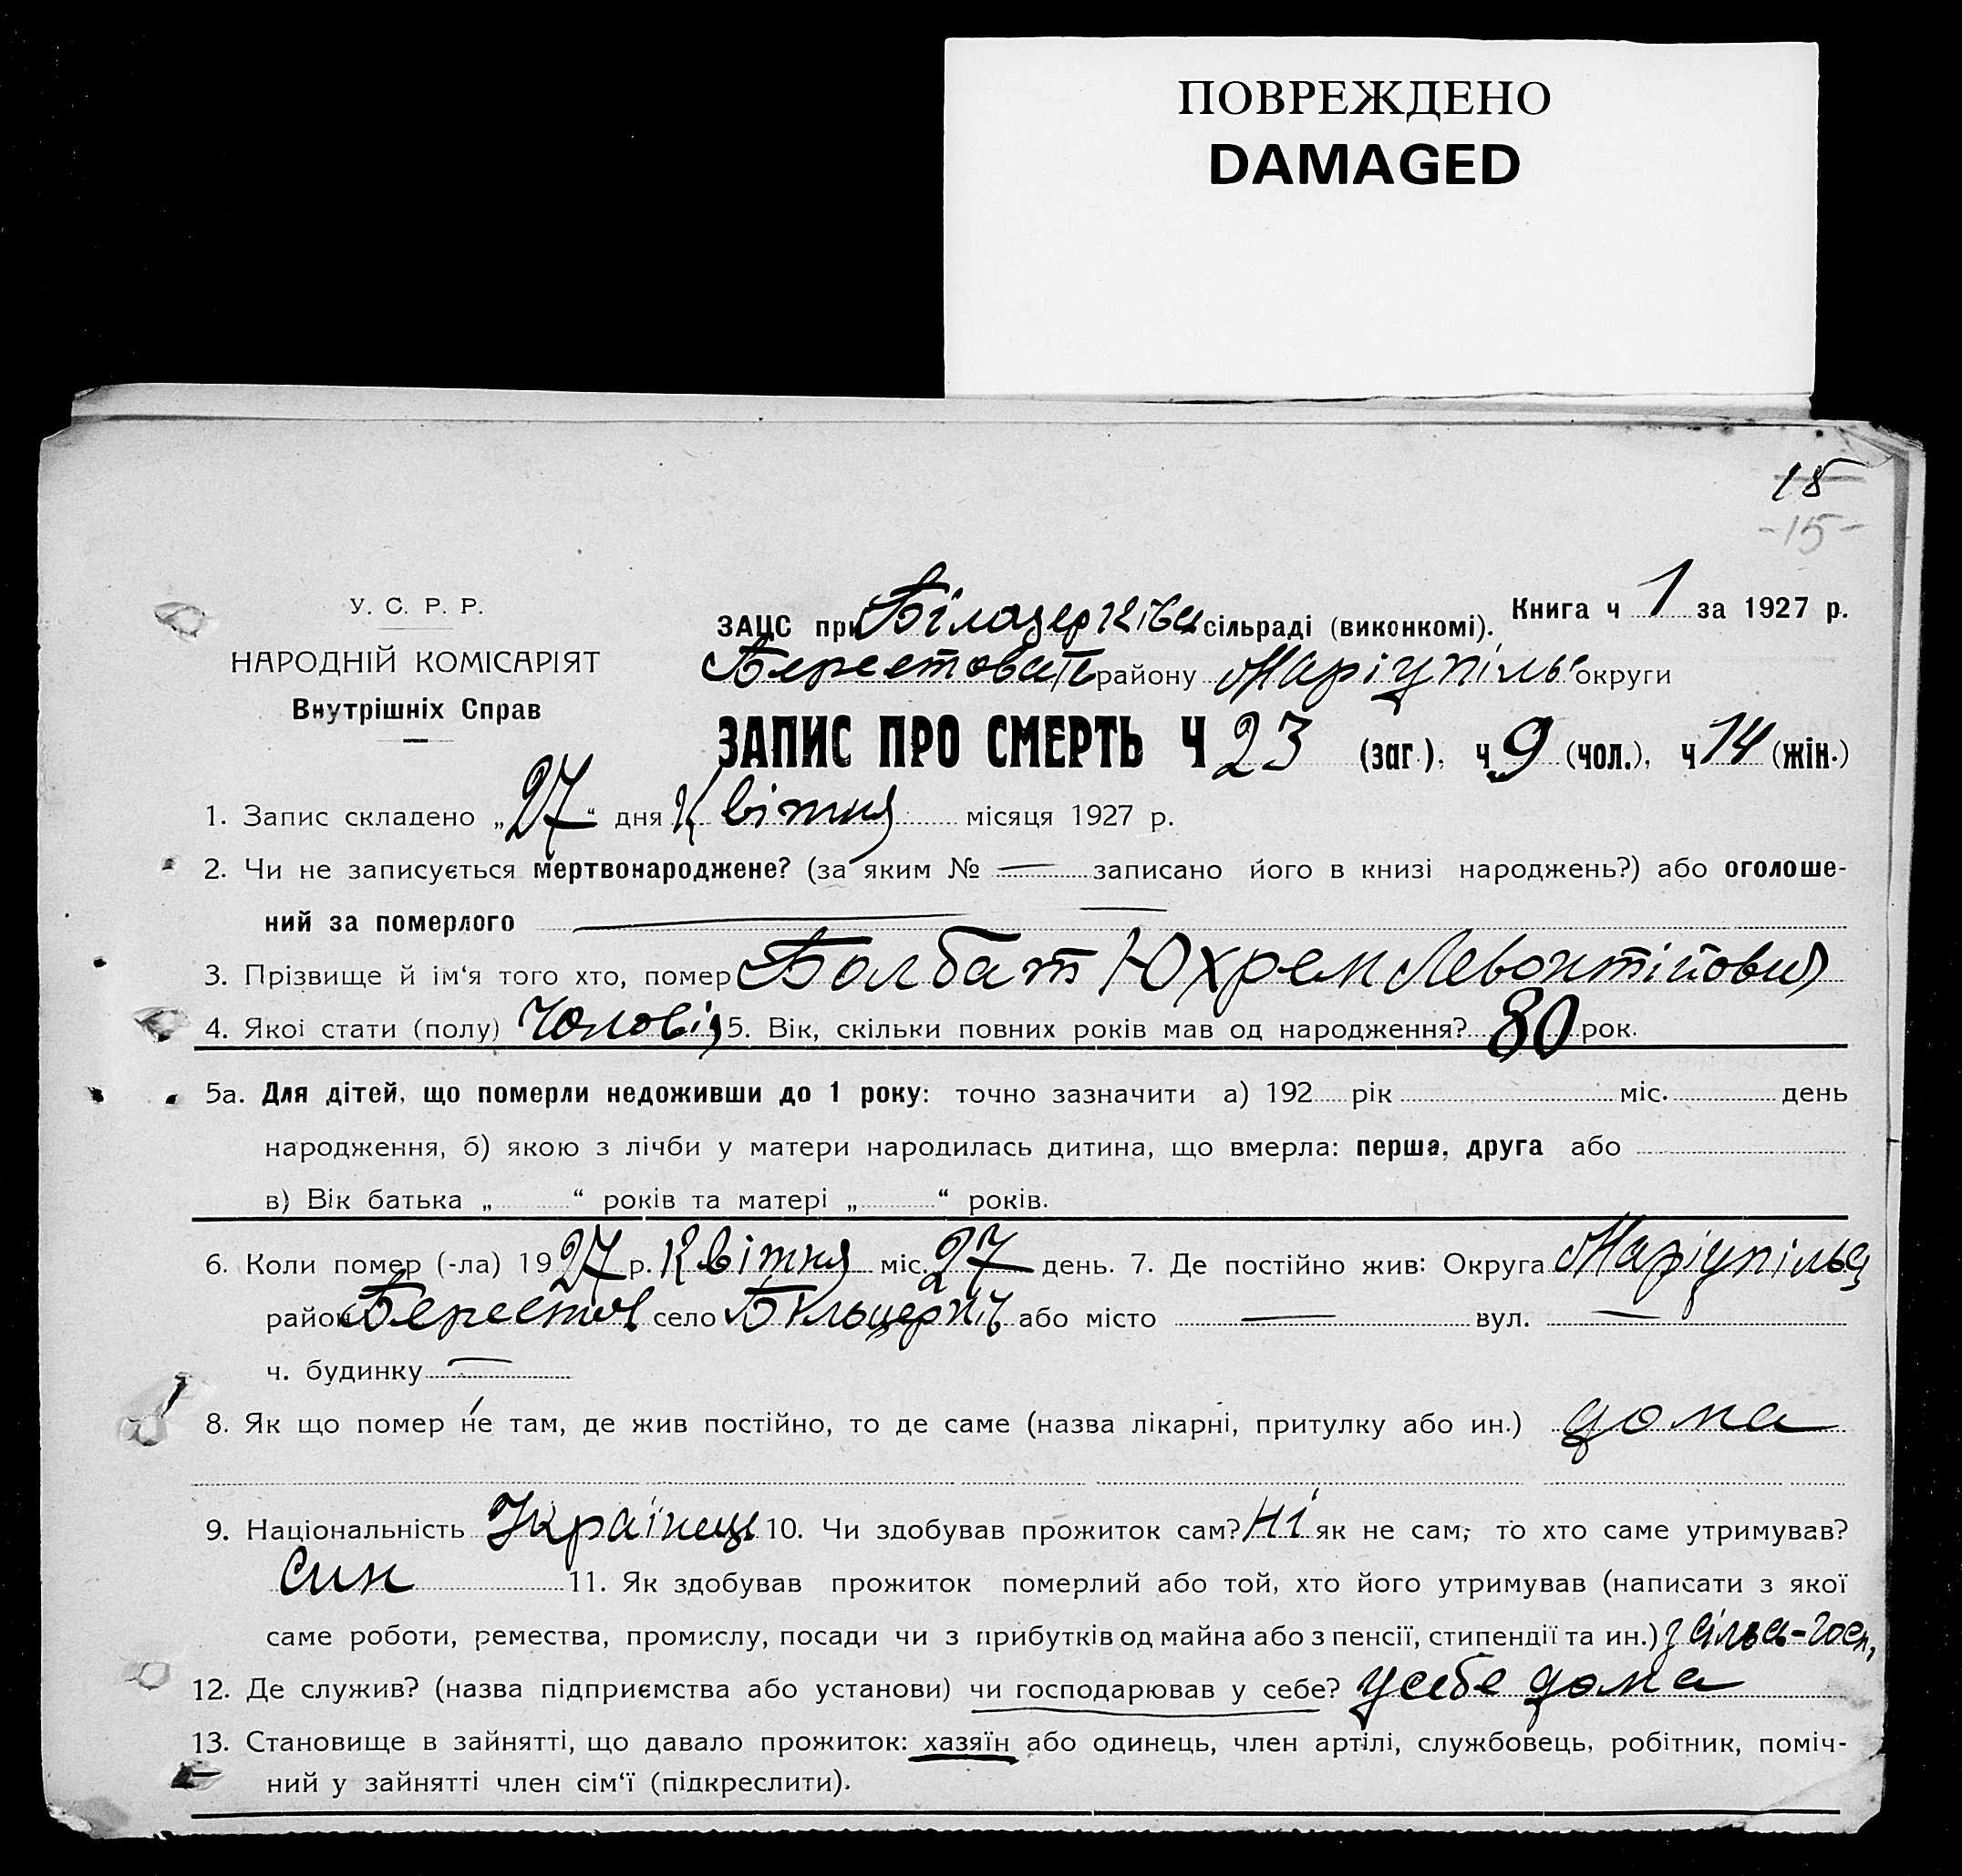 ПОВРЕЖДЕНО
DAMAGED
18
-15-
У. С. Р. Р.
НАРОДНІЙ КОМІСАРІЯТ
Внутрішніх Справ
Книга ч 1 за 1927 р.
ЗАЦС при Білоцерківсь сільраді (виконкомі).
району Маріупіль округи
ЗАПИС ПРО СМЕРТЬ Ч 23 (заг.), ч 9 (чол.), ч 14 (жін.)
1. Запис складено „27“ дня Квітня місяця 1927 р.
2. Чи не записується мертвонароджене? (за яким № — записано його в книзі народжень?) або оголоше-
ний за померлого —
3. Прізвище й ім‘я того хто, помер Болбат Юхрем Левонтійович
4. Якої стати (полу) Чоловіч 5. Вік, скільки повних років мав од народження? 80 рок.
5а. Для дітей, що померли недоживши до 1 року: точно зазначити а) 192 рік міс. день
народження, б) якою з лічби у матери народилась дитина, що вмерла: перша, друга або
в) Вік батька „ “ років та матері „ “ років.
6. Коли помер (-ла) 1927 р. Квітня міс. 27 день. 7. Де постійно жив: Округа Маріупільсь
район Берестов село або місто — вул. —
ч. будинку —
8. Як що помер не там, де жив постійно, то де саме (назва лікарні, притулку або ин.) дома
9. Національність Українець 10. Чи здобував прожиток сам? Ні як не сам, то хто саме утримував?
Син 11. Як здобував прожиток померлий або той, хто його утримував (написати з якої
саме роботи, ремества, промислу, посади чи з прибутків од майна або з пенсії, стипендії та ин.) з сільсь-госп,
12. Де служив? (назва підприємства або установи) чи господарював у себе? у себе дома
13. Становище в зайнятті, що давало прожиток: хазяїн або одинець, член артілі, службовець, робітник, поміч-
ний у зайнятті член сім‘ї (підкреслити).